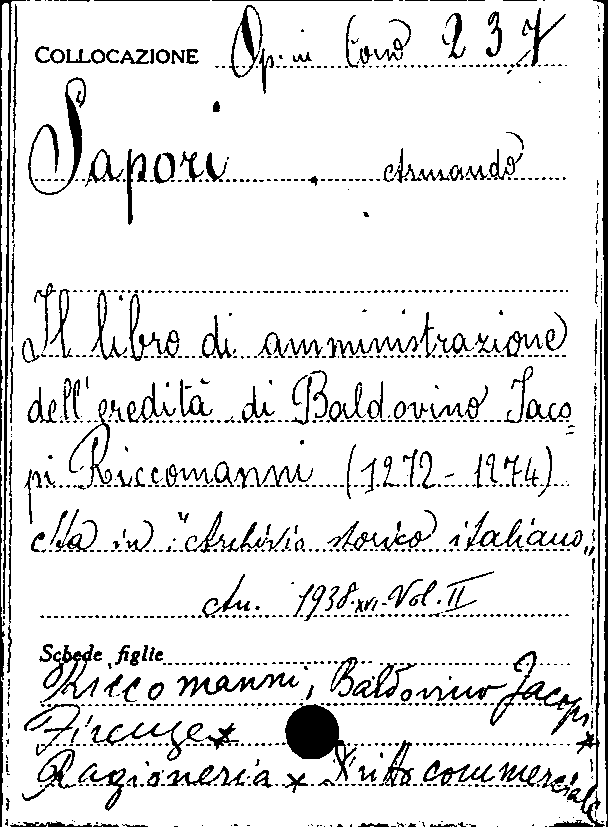 COLLOCAZIONE Op. in Cons 237
Sapori . Armando
Il libro di amministrazione
dell'eredità di Baldovino Jaco=
pi Riccomanni (1272-1274)
Sta in "Archivio storico italiano„
An. 1938.XVI-Vol. II
Schede figlie
Riccomanni, Baldovino Jacopi *
Firenze *
Ragioneria * Dritto commerciale